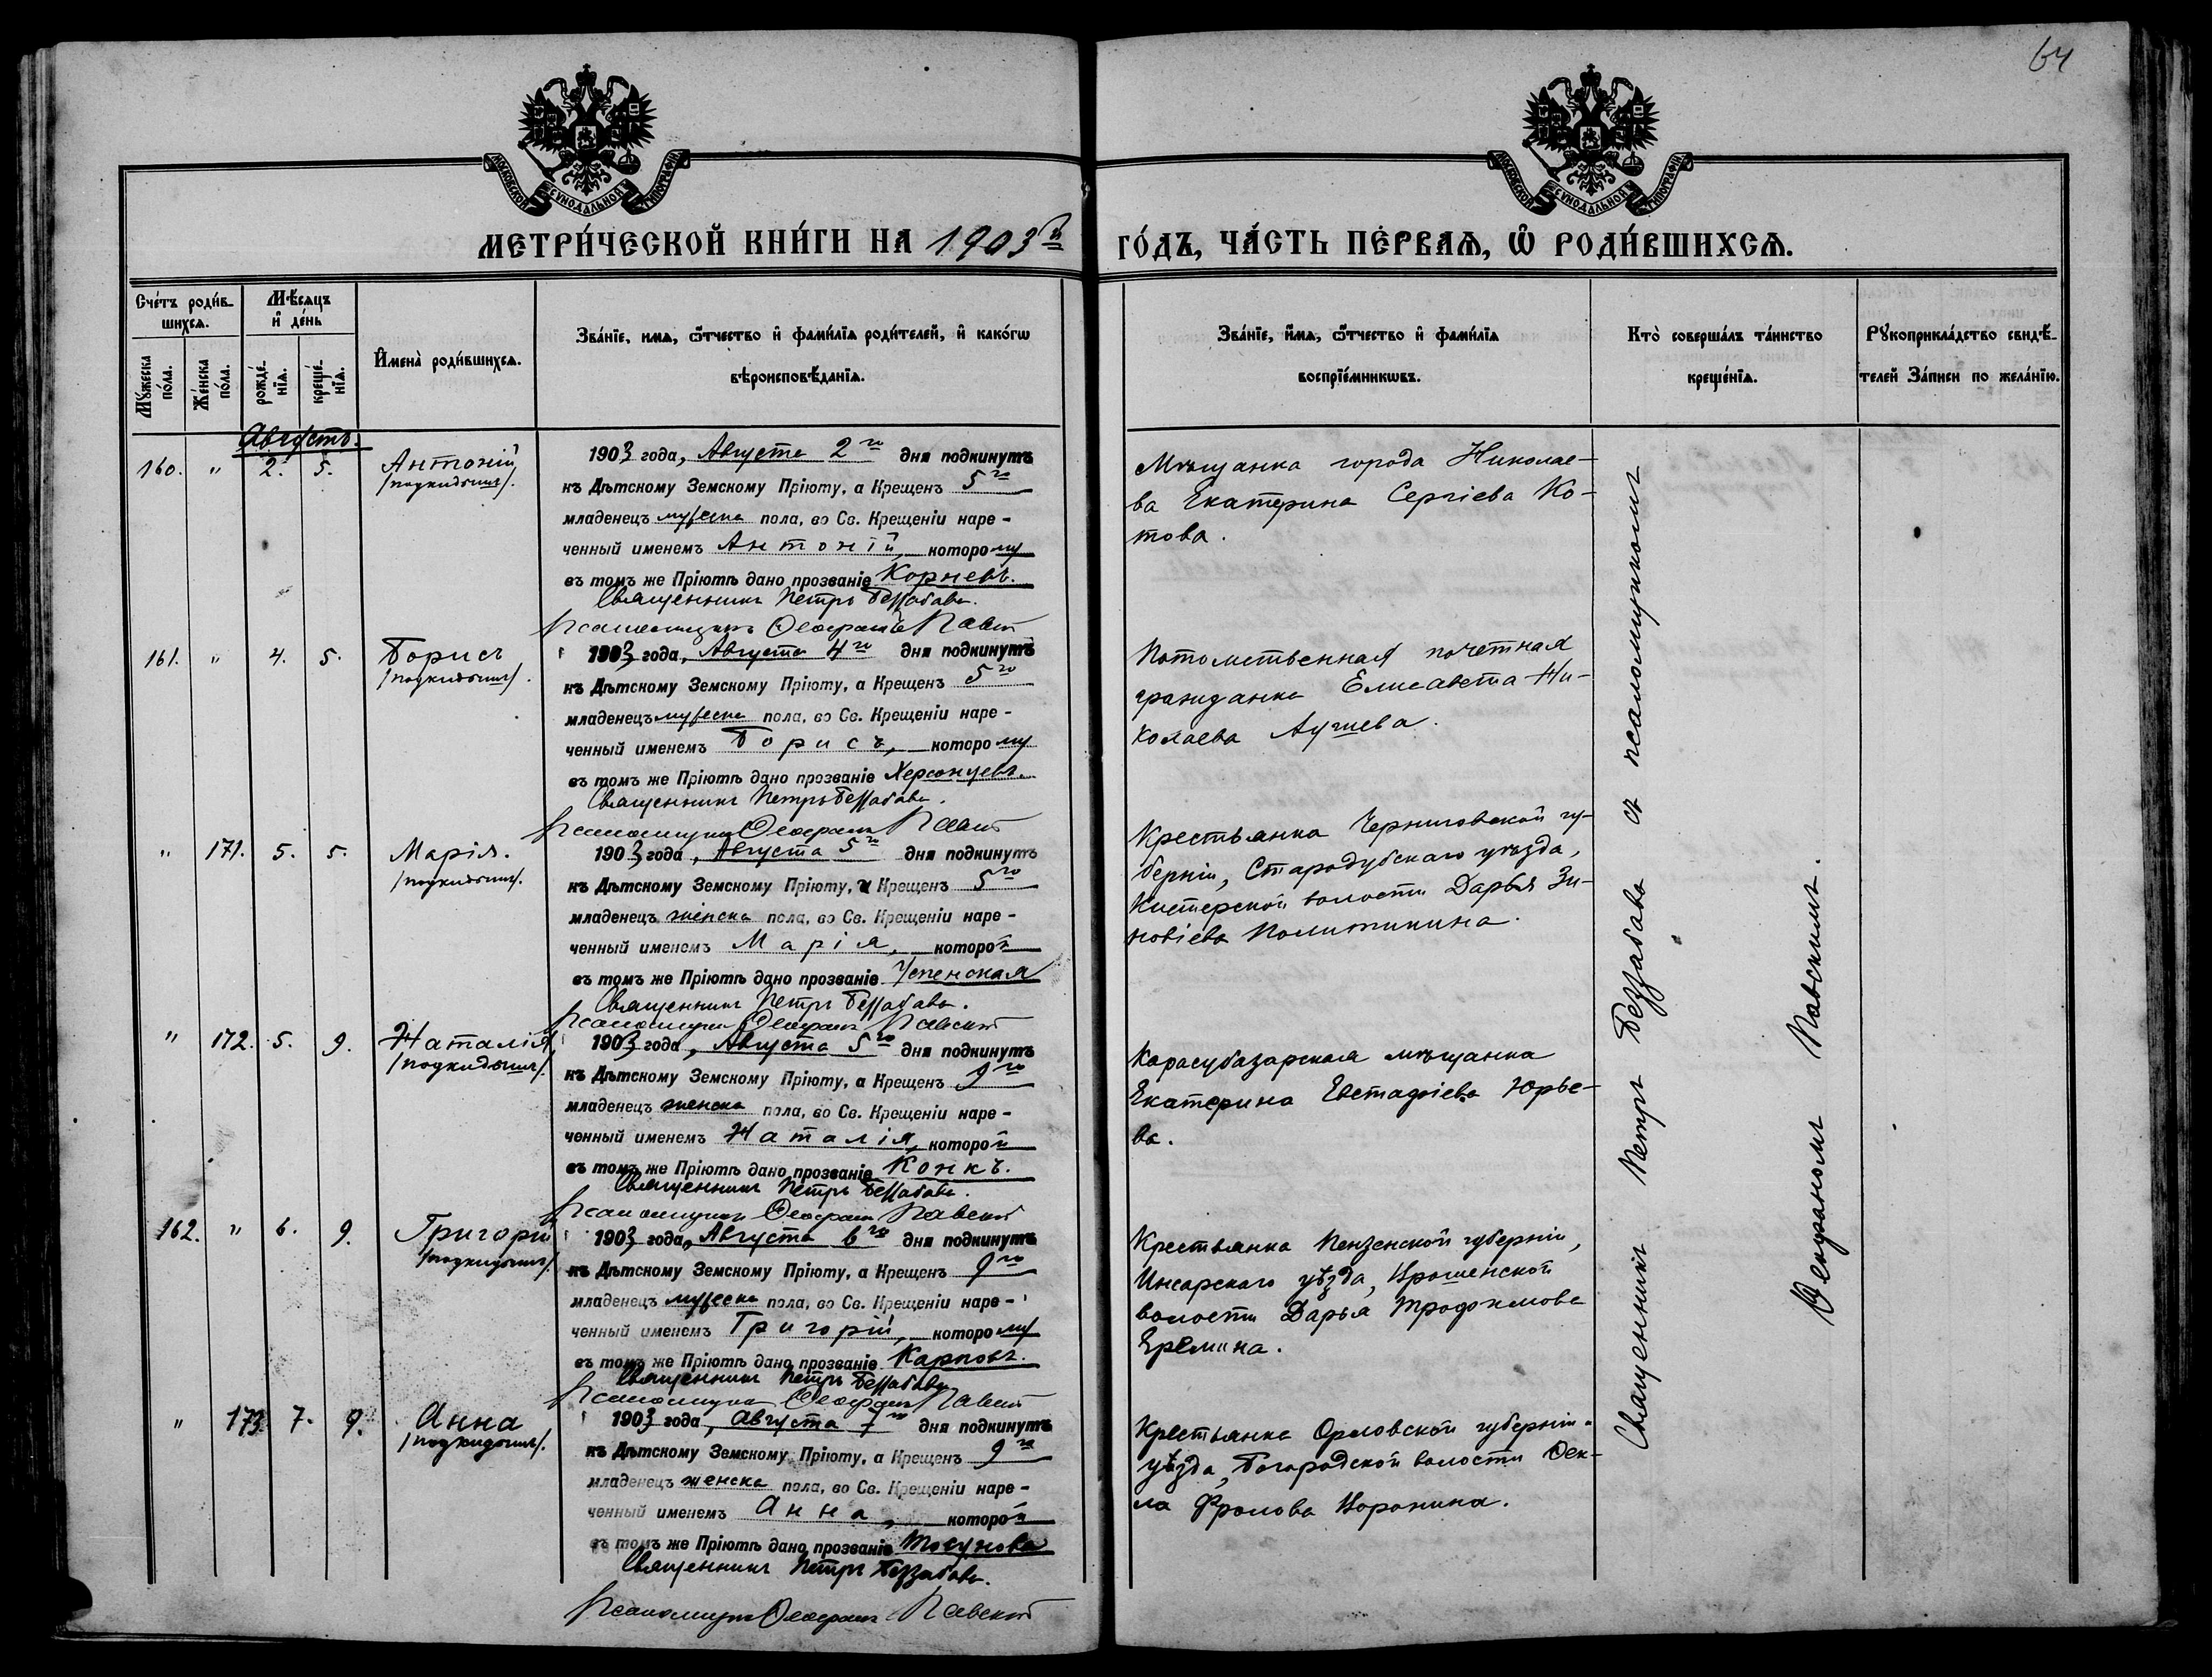 64
МОСКОВСКОЙ СѴНОДАЛЬНОЙ ТИПОГРАФІИ
МОСКОВСКОЙ СѴНОДАЛЬНОЙ ТИПОГРАФІИ
МЕТРИ́ЧЕСКОЙ КНИ́ГИ НА 1903й
ГО́ДЪ, ЧА́СТЬ ПЕ́РВАѦ, Ѽ РОДИ́ВШИХСѦ.
Сче́тъ роди́в-
шихсѧ.
Мѣ́сѧцъ
и҆ де́нь
Мꙋ́жеска
по́ла.
Же́нска
по́ла.
рожде́-
нїѧ.
креще́-
нїѧ.
И҆мена̀ роди́вшихсѧ.
Зва́нїе, имѧ, ѻ҆́тчество и҆ фами́лїѧ роди́телей, и҆ како́гѡ
вѣроисповѣ́данїѧ.
Зва́нїе, и҆́мѧ, ѻ҆́тчество и҆ фами́лїѧ
воспрїе́мникѡвъ.
Кто̀ соверша́лъ та́инство
креще́нїѧ.
Рꙋкоприкла́дство свидѣ́-
телей За́писи по жела́нїю.
Августъ.
160. " 2. 5. Антоній
/подкидышъ/.
1903 года, Августа 2го дня подкинутъ
къ Дѣтскому Земскому Пріюту, а Крещенъ 5го
младенецъ мужеска пола, во Св. Крещеніи наре-
ченный именемъ Антоній, которому
въ томъ же Пріютѣ дано прозваніе Корневъ.
Священникъ Петръ Беззабава.
Псаломщикъ Ѳеофанъ Павскій
Мѣщанка города Николае-
ва Екатерина Сергіева Ко-
това.
161. " 4. 5. Борисъ
/подкидышъ/.
1903 года, Августа 4го дня подкинутъ
къ Дѣтскому Земскому Пріюту, а Крещенъ 5го
младенецъ мужеска пола, во Св. Крещеніи наре-
ченный именемъ Борисъ, которому
въ томъ же Пріютѣ дано прозваніе Херсонцевъ.
Священникъ Петръ Беззабава.
Псаломщикъ Ѳеофанъ Павскій
Потомственная почетная
гражданка Елисавета Ни-
колаева
" 171. 5. 5. Марія.
/подкидышъ/.
1903 года, Августа 5го дня подкинутъ
къ Дѣтскому Земскому Пріюту, а Крещенъ 5го
младенецъ женска пола, во Св. Крещеніи наре-
ченный именемъ Марія, которой
въ томъ же Пріютѣ дано прозваніе Успенская
Священникъ Петръ Беззабава.
Псаломщикъ Ѳеофанъ Павскій
Крестьянка Черниговской гу-
берніи, Стародубскаго уѣзда,
волости Дарья Зи-
новіева Политикина.
" 172. 5. 9. Наталія
/подкидышъ/.
1903 года, Августа 5го дня подкинутъ
къ Дѣтскому Земскому Пріюту, а Крещенъ 9го
младенецъ женска пола, во Св. Крещеніи наре-
ченный именемъ Наталія, которой
въ томъ же Пріютѣ дано прозваніе Конкъ.
Священникъ Петръ Беззабава.
Псаломщикъ Ѳеофанъ Павскій
Карасубазарская мѣщанка
Екатерина Евстафіева Юрье-
ва.
162. " 6. 9. Григорій
/подкидышъ/.
1903 года, Августа 6го дня подкинутъ
къ Дѣтскому Земскому Пріюту, а Крещенъ 9го
младенецъ мужеска пола, во Св. Крещеніи наре-
ченный именемъ Григорій, которому
въ томъ же Пріютѣ дано прозваніе Карповъ.
Священникъ Петръ Беззабава
Псаломщикъ Ѳеофанъ Павскій
Крестьянка Пензенской губерніи,
Инсарскаго уѣзда,
волости Дарья Трофимова
Еремина.
" 173. 7. 9. Анна
/подкидышъ/.
1903 года, Августа 7го дня подкинутъ
къ Дѣтскому Земскому Пріюту, а Крещенъ 9го
младенецъ женска пола, во Св. Крещеніи наре-
ченный именемъ Анна, которой
въ томъ же Пріютѣ дано прозваніе
Священникъ Петръ Беззабава.
Псаломщикъ Ѳеофанъ Павскій
Крестьянка Орловской губерніи и
уѣзда, Богородской волости Ѳек-
ла Фролова Воронина.
Священникъ Петръ Беззабава съ псаломщикомъ
Ѳеофаномъ Павскимъ.